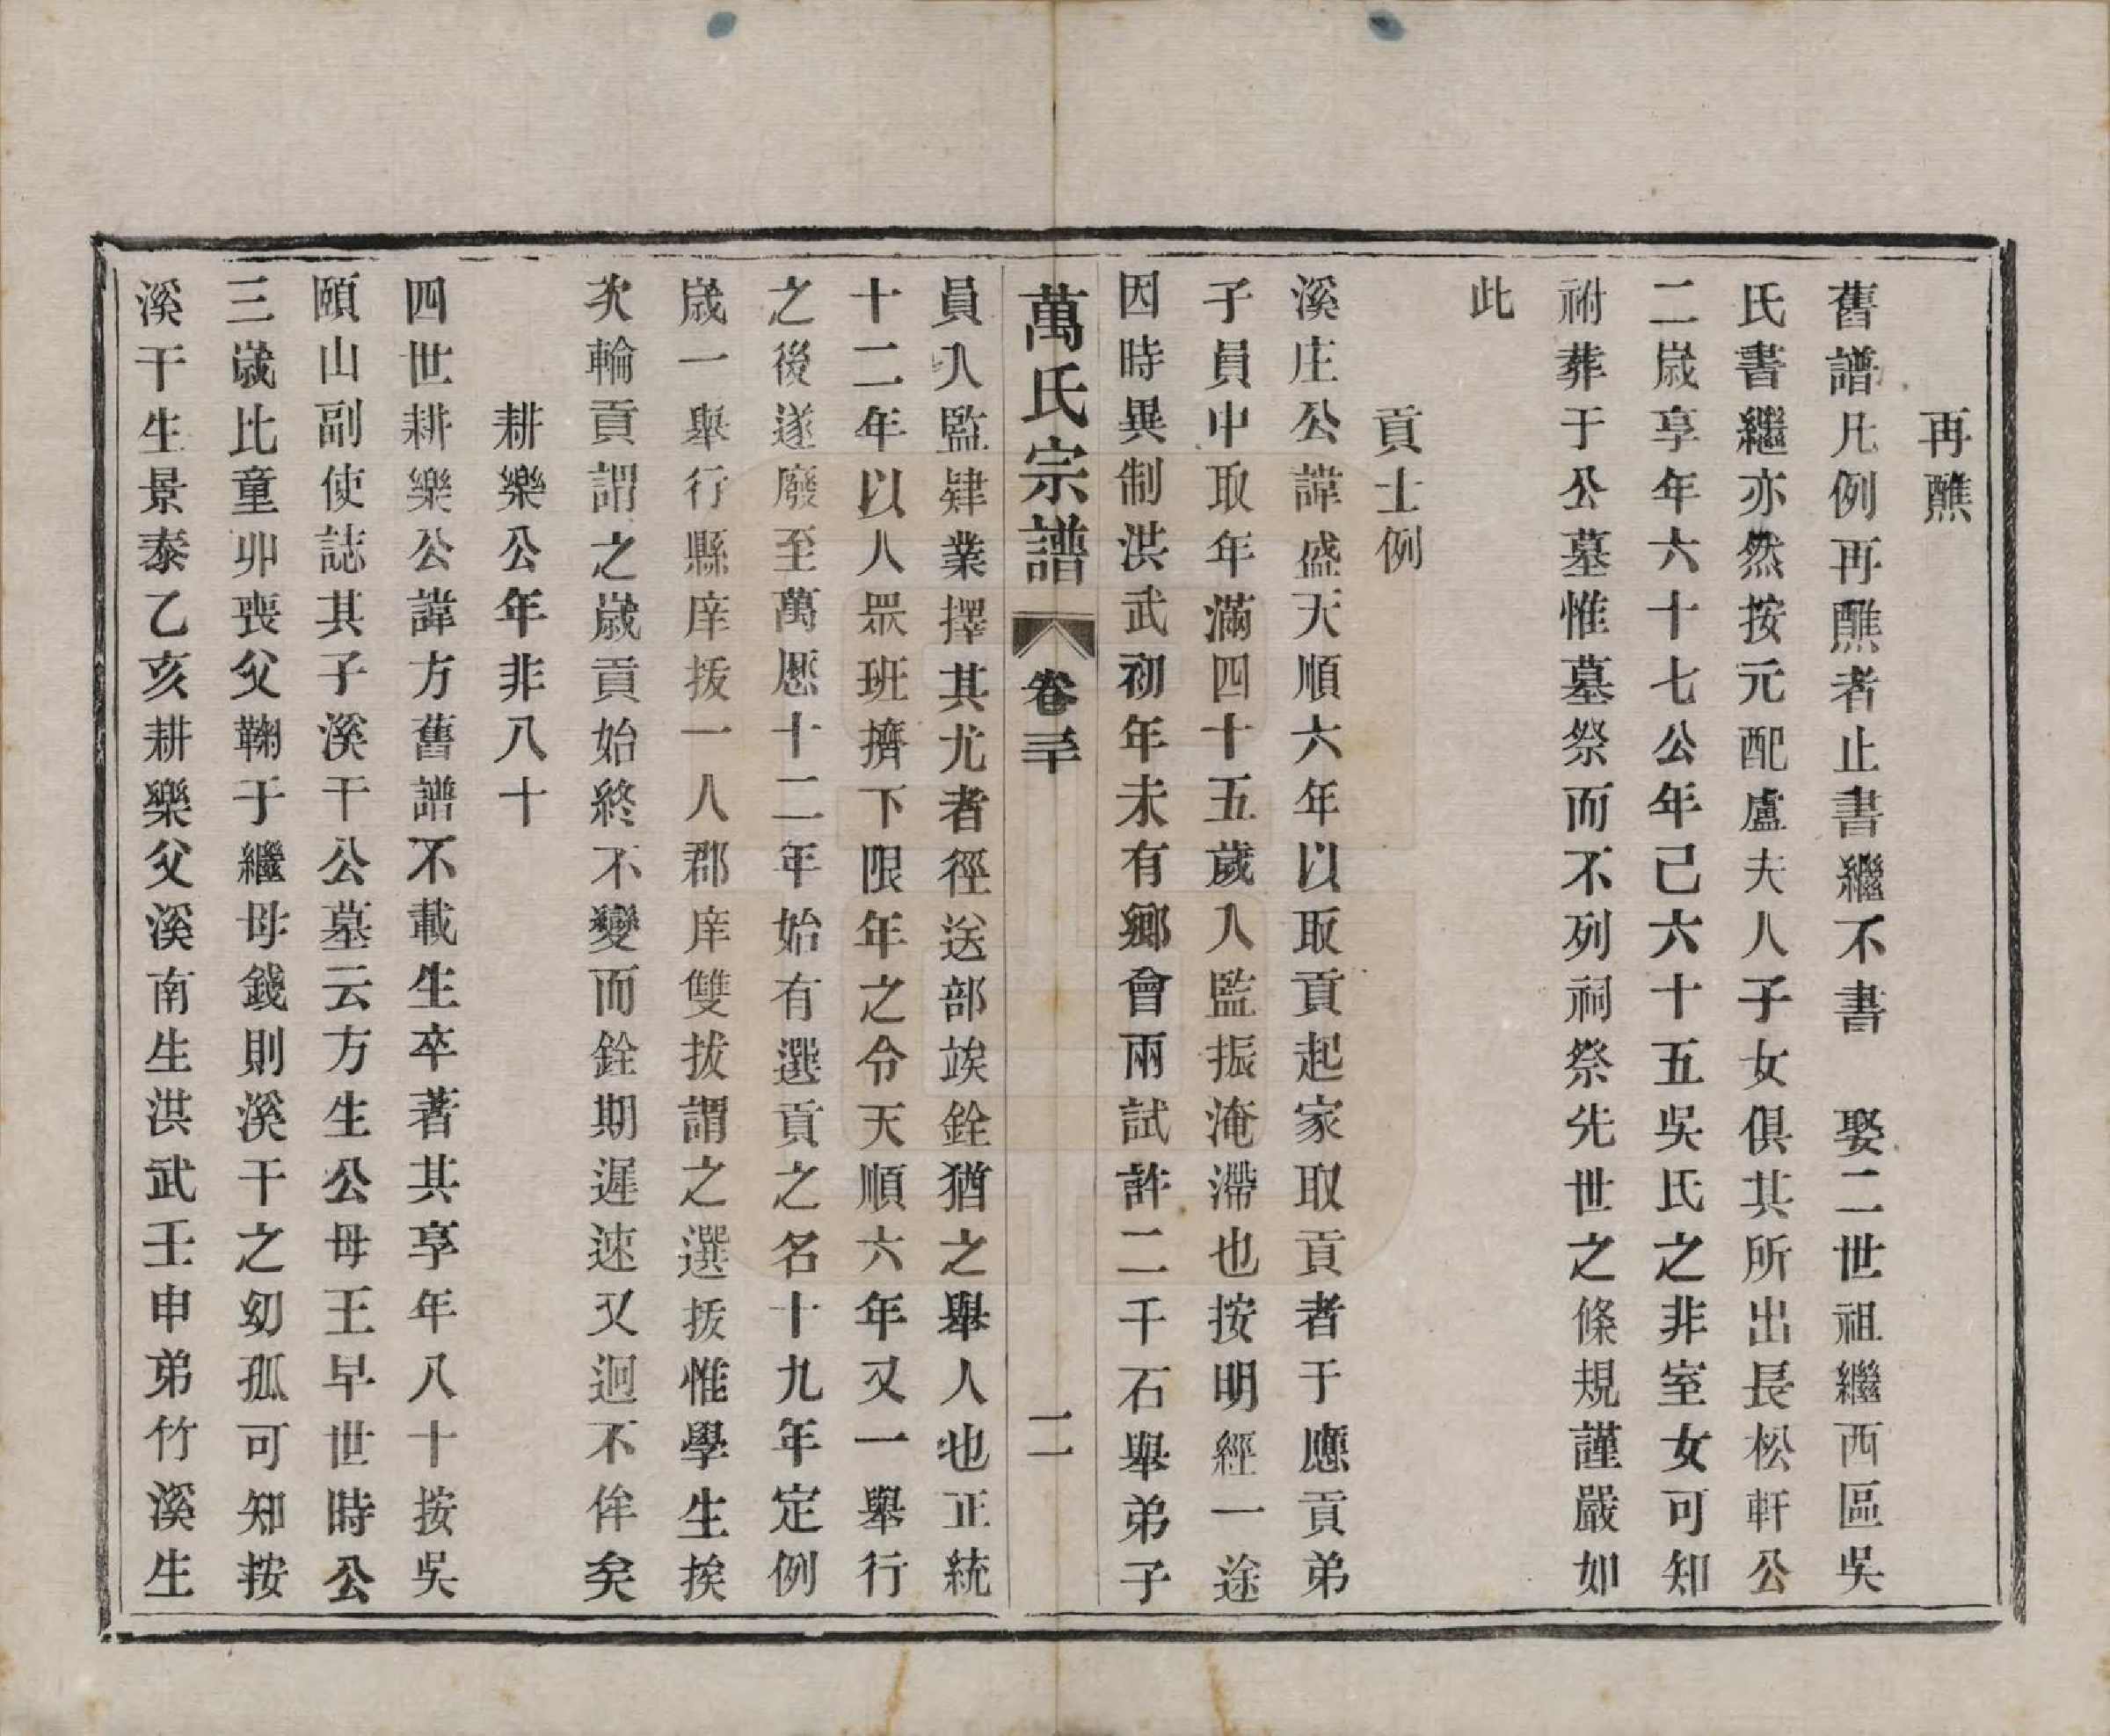 再醮
舊譜凡例再醮者止書繼不書　娶二世祖繼西區吳
氏書繼亦然按元配盧夫人子女俱其所出長松軒公
二歲享年六十七公年己六十五吳氏之非室女可知
祔葬于公墓惟墓祭而不列祠祭先世之條規謹嚴如
此
貢士例
溪庄公諱盛天順六年以取貢起家取貢者于應貢弟
子員中取年滿四十五歲入監振淹滯也按明經一途
因時異制洪武初年未有鄉會兩試許二千石舉弟子
萬氏宗譜　卷三十　二
員入監肄業擇其尤者徑送部竢銓猶之舉人也正統
十二年以人眾班擠下限年之令天順六年又一舉行
之後遂廢至萬歷十二年始有選貢之名十九年定例
歲一舉行縣庠拔一人郡庠雙拔謂之選拔惟學生挨
次輪貢謂之歲貢始終不變而銓期遲速又迥不侔矣
耕樂公年非八十
四世耕樂公諱方舊譜不載生卒著其享年八十按吳
頤山副使誌其子溪干公墓云方生公母王早世時公
三歲比童丱喪父鞠于繼母錢則溪干之幼孤可知按
溪干生景泰乙亥耕樂父溪南生洪武壬申弟竹溪生